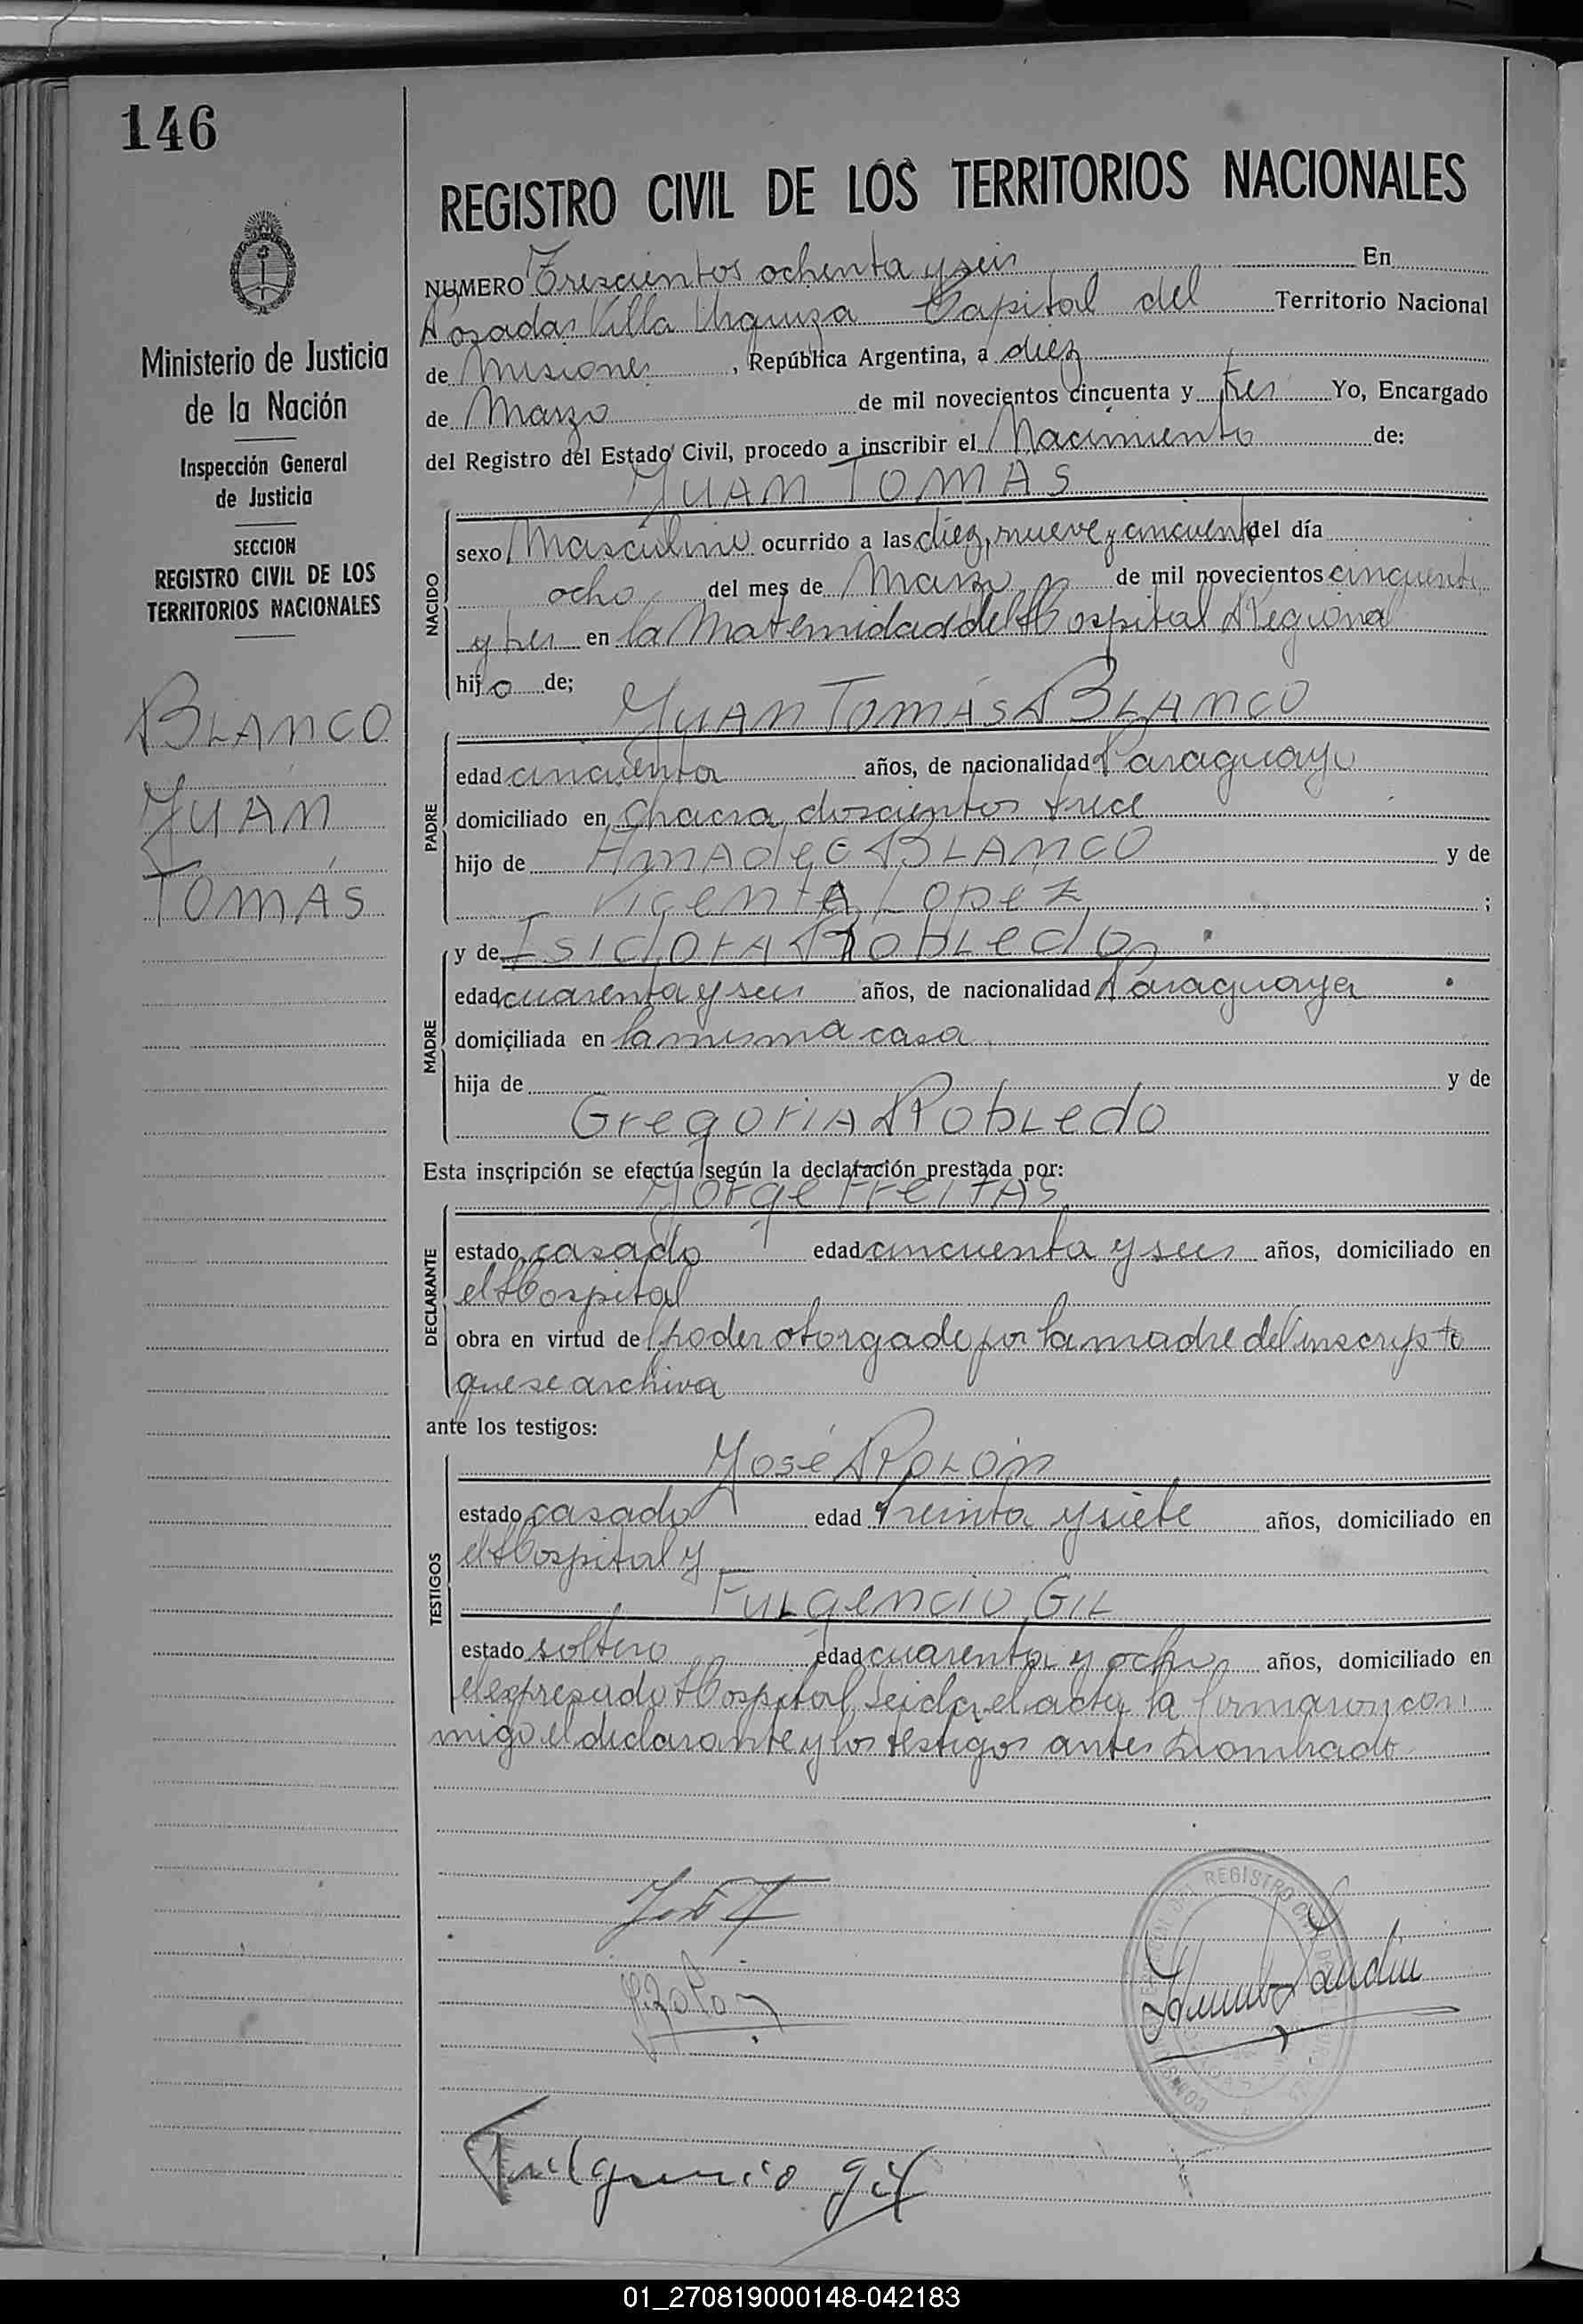 146
Ministerio de Justicia
de la Nación
Inspección General
de Justicia
SECCION
REGISTRO CIVIL DE LOS
TERRITORIOS NACIONALES
BLANCO
JUAN
TOMÁS
REGISTRO CIVIL DE LOS TERRITORIOS NACIONALES
NUMERO Trescientos ochenta y seis En
Posadas Villa Urquiza Capital del Territorio Nacional
de Misiones, República Argentina, a diez
de Marzo de mil novecientos cincuenta y tres Yo, Encargado
del Registro del Estado Civil, procedo a inscribir el Nacimiento de:
JUAN TOMAS
NACIDO
sexo Masculino ocurrido a las diez, nueve y cincuenta del día
ocho del mes de Marzo de mil novecientos cincuenta
y tres en la Maternidad del Hospital Regional
hijo de;
JUAN TOMÁS BLANCO
PADRE
edad cincuenta años, de nacionalidad Paraguayo
domiciliado en Chacra doscientos trece
hijo de Amadeo BLANCO y de
Vicenta Lopez ;
y de Isidora Robledo
MADRE
edad cuarenta y seis años, de nacionalidad Paraguaya
domiciliada en la misma casa
hija de y de
Gregoria Robledo
Esta inscripción se efectúa según la declaración prestada por:
Jorge Freitas
DECLARANTE
estado casado edad cincuenta y seis años, domiciliado en
el Hospital
obra en virtud de poder otorgado por la madre del inscripto
que se archiva
ante los testigos:
José Rolón
TESTIGOS
estado casado edad treinta y siete años, domiciliado en
el Hospital y
Fulgencio Gil
estado soltero edad cuarenta y ocho años, domiciliado en
el expresado Hospital, Leida el acta la firmaron con
migo el declarante y los testigos antes nombrado
REGISTRO
Fulgencio gil
01_270819000148-042183